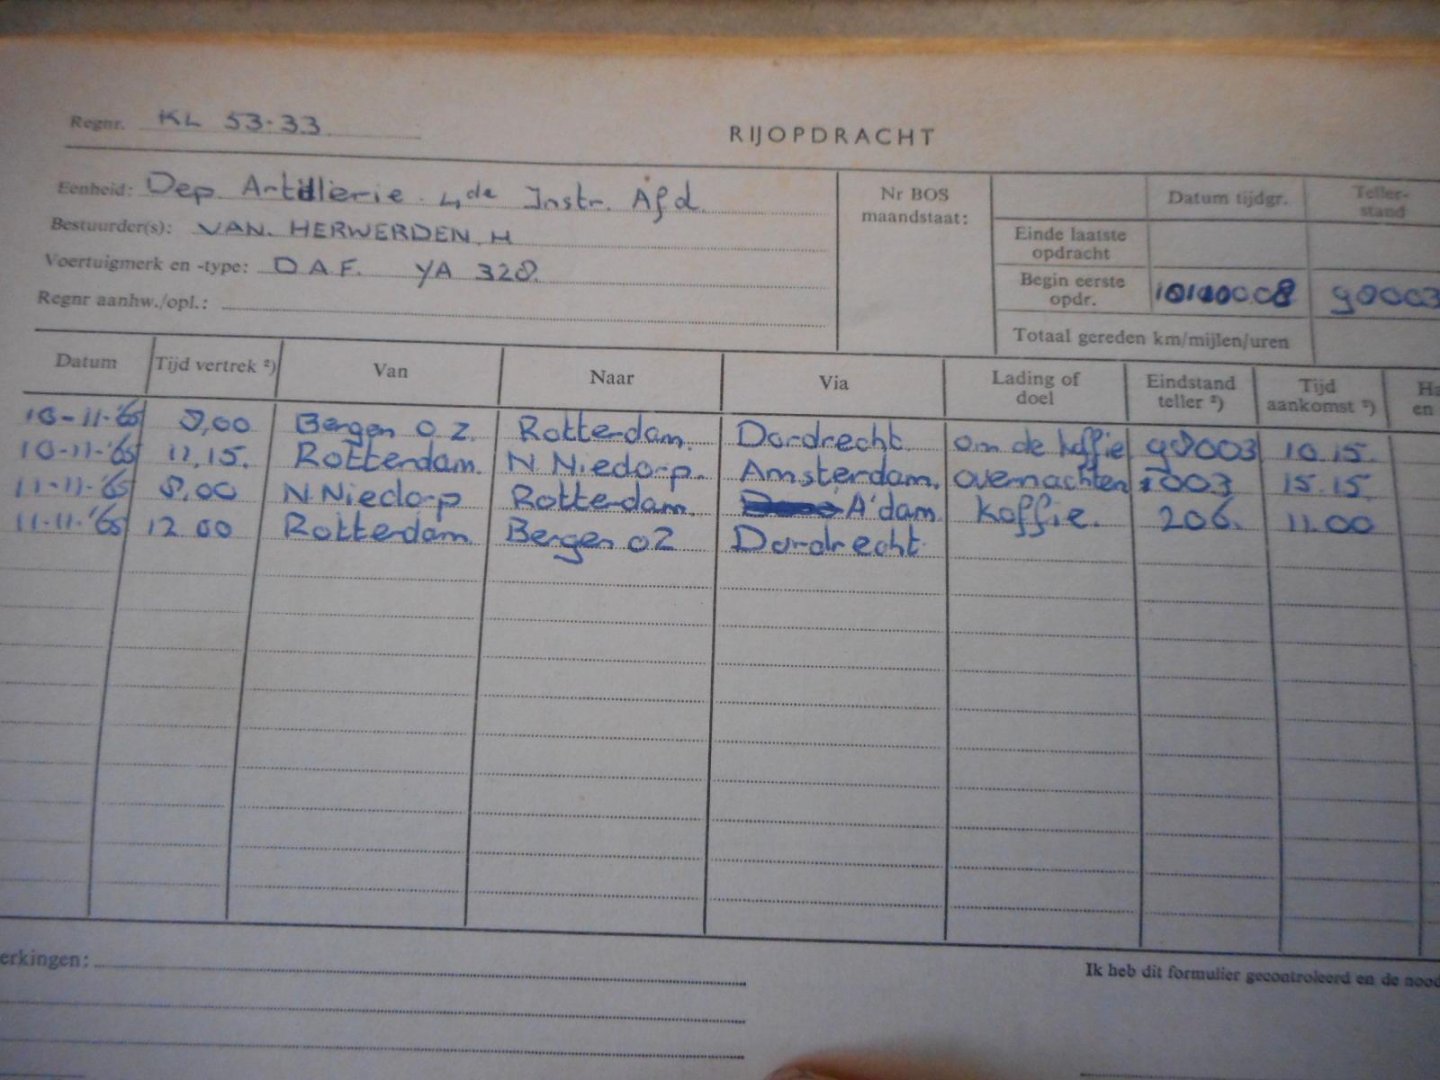 Regnr. KL 53-33
RIJOPDRACHT
Eenheid: Dep. Artillerie 4de Instr. Afd.
Bestuurder(s): VAN. HERWERDEN. H
Voertuigmerk en -type: D A F. YA 328.
Regnr aanhw./opl.:
Nr BOS
maandstaat:
Datum tijdgr. Teller-
stand
Einde laatste
opdracht
Begin eerste
opdr. 90003
Totaal gereden km/mijlen/uren
Datum Tijd vertrek ²) Van Naar Via Lading of
doel Eindstand
teller ²) Tijd
aankomst ²) Ha
en
10-11-'65 8,00 Bergen o z. Rotterdam. Dordrecht om de koffie 10.15.
10-11-'65 11,15. Rotterdam. N Niedorp. Amsterdam. overnachten 003 15.15.
11-11-'65 8,00 N Niedorp Rotterdam. A'dam. koffie. 206. 11.00
11-11-'65 12.00 Rotterdam Bergen o Z Dordrecht
erkingen:
Ik heb dit formulier gecontroleerd en de nood